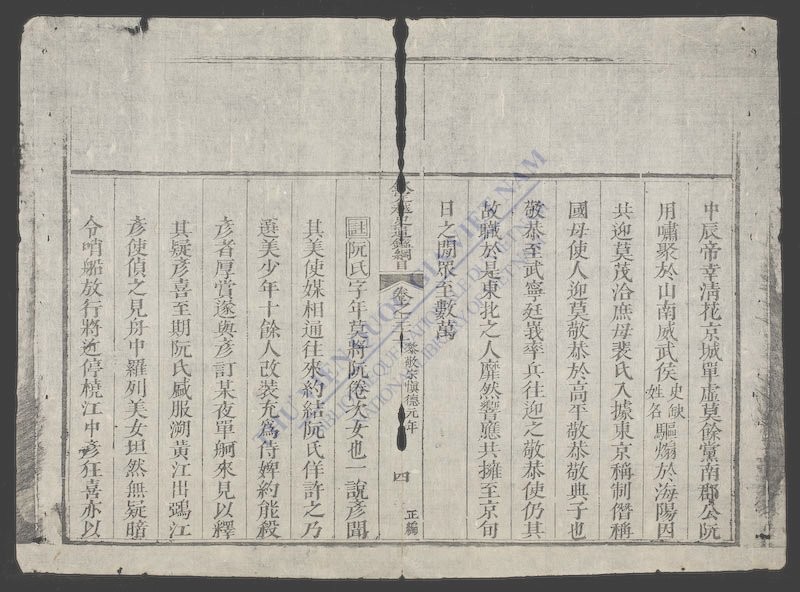 中辰帝幸清花京城單虛莫餘黨南郡公阮
用嘯聚於山南威武侯史缺姓名驅煽於海陽因
共迎莫茂洽庶母裴氏入據東京稱制僭稱
國母使人迎莫敬恭於高平敬恭敬典子也
敬恭至武寧廷峩率兵往迎之敬恭使仍其
故職於是東北之人靡然響應共擁至京旬
日之間眾至數萬
越史通鑑綱目 卷之三十 黎敬宗慎德元年 四 正編
註阮氏字年莫將阮倦次女也一說彥聞
其美使媒相通往來約結阮氏佯許之乃
選美少年十餘人改裝充爲侍婢約能殺
彥者厚賞遂與彥訂某夜單舸來見以釋
其疑彥喜至期阮氏盛服溯黃江出鴻江
彥使偵之見舟中羅列美女坦然無疑暗
令哨船放行將近停橈江中彥狂喜亦以
THƯ VIỆN QUỐC GIA VIỆT NAM
BIBLIOTHÈQUE NATIONALE DU VIETNAM
NATIONAL LIBRARY OF VIETNAM